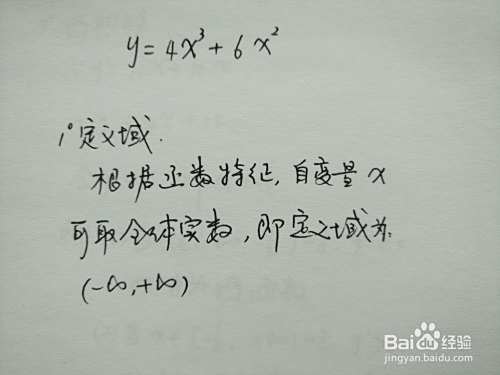 y=4x³+6x²
1°定义域.
根据函数特征,自变量x
可取全体实数,即定义域为:
(-∞,+∞)
Baidu经验
jingyan.baidu.com